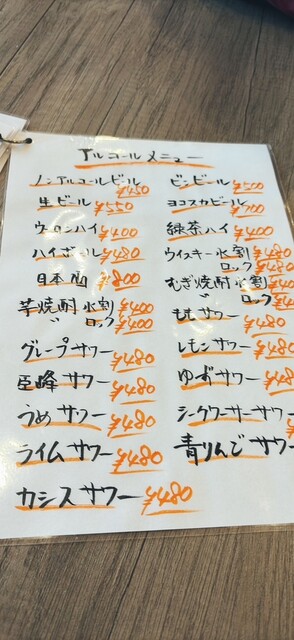 アルコールメニュー
ノンアルコールビール ¥450
生ビール ¥550
ウーロンハイ ¥400
ハイボール ¥480
日本酒 ¥800
芋焼酎 水割 ¥400
〃 ロック ¥400
グレープサワー ¥480
巨峰サワー ¥480
うめサワー ¥480
ライムサワー ¥480
カシスサワー ¥480
ビンビール ¥500
ヨコスカビール ¥700
緑茶ハイ ¥400
ウイスキー水割 ¥480
ロック ¥480
むぎ焼酎 水割
〃 ロック
ももサワー ¥480
レモンサワー ¥480
ゆずサワー ¥480
シークワーサーサワー
青りんごサワー